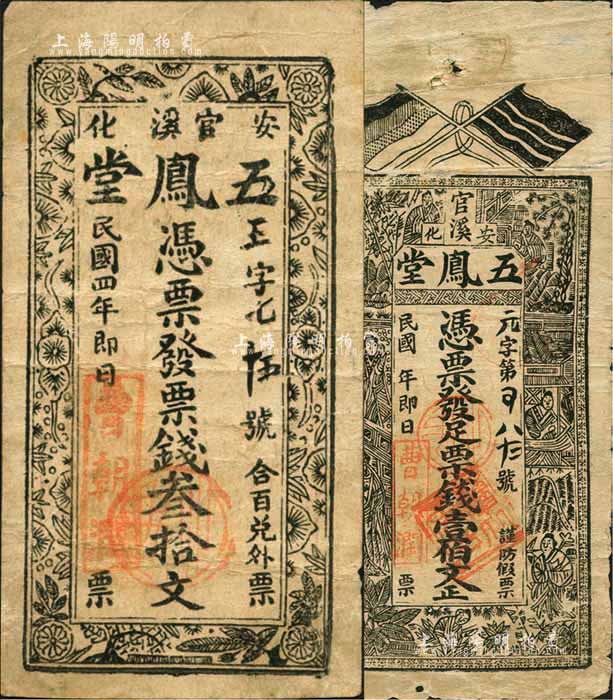 上海陽明拍賣
www.yangmingauction.com
安官溪化
五鳳堂
王字七伍號
合百兑外票
憑票發票錢叁拾文
民國四年即日
票
上海陽明拍賣
官溪
安化
五鳳堂
元字第
號
謹防假票
憑票發足票錢壹佰文正
民國 年即日
票
曹
潤
上海陽明拍賣
www.yangmingauction.com